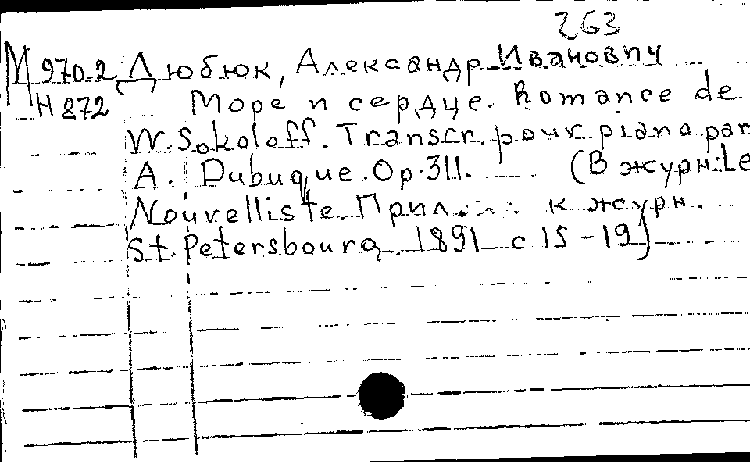 263
М 970-2 Дюбюк, Александр Иванович
Н 872 Море и сердце. Romance de
W. Sokoloff. Transcr. pour piano par
A. Dubuque. Op. 311. (В журн: Le
Nouvelliste. Прил. к журн.
St. Petersbourg, 1891 с 15-19)